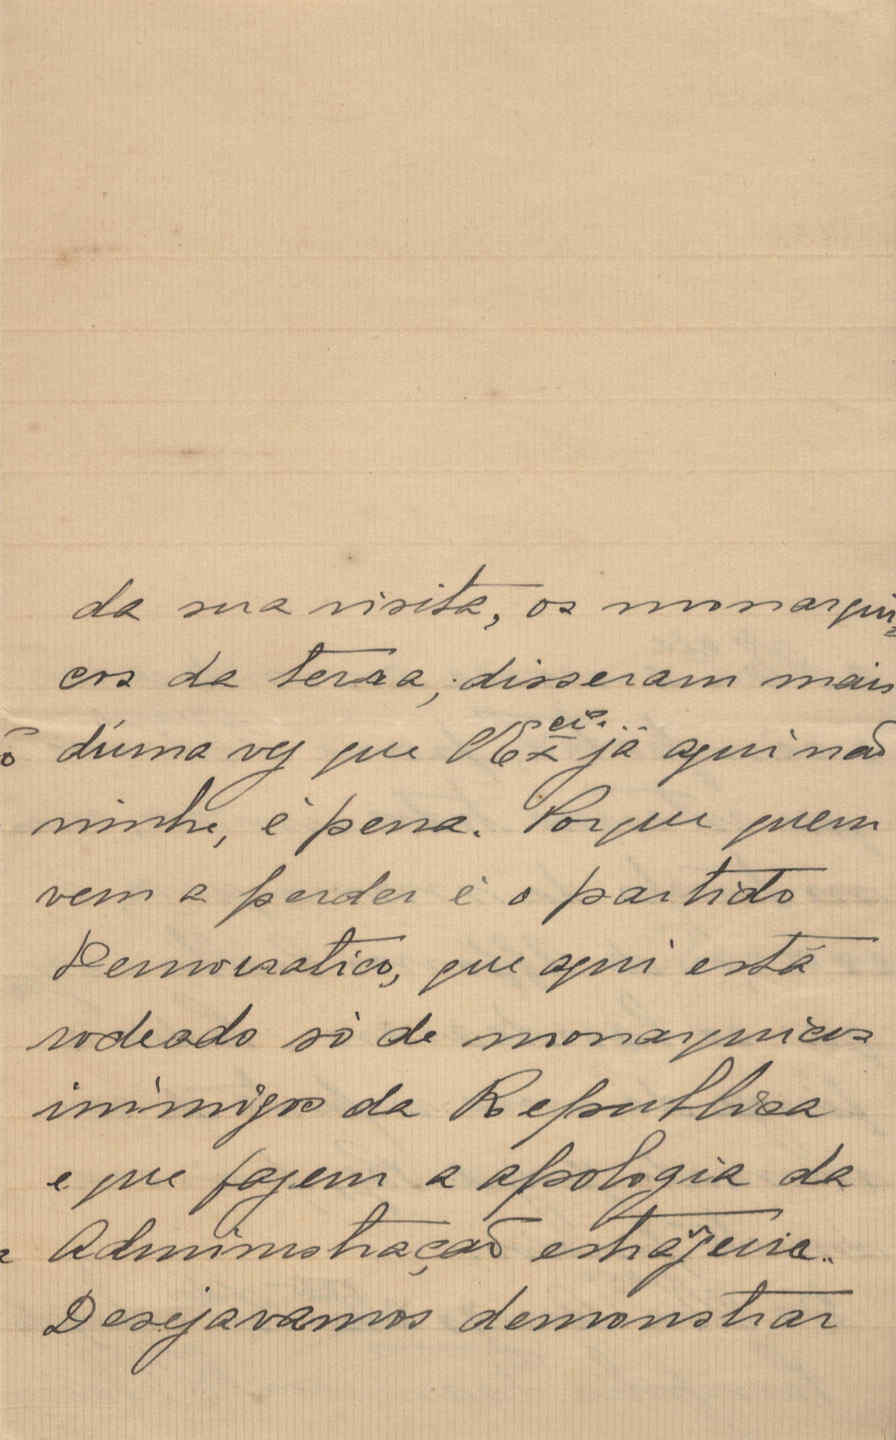 da sua visita, os monarqui-
cos da terra, disseram mais
d'uma vez que V. Ex.cia já aqui não
vinha, é pena. Porque quem
vem a perder é o partido
Democratico, que aqui está
rodeado só de monarquicos
inimigos da Republica
e que fazem a apologia da
Administração estrãgeira.
Desejavamos demonstrar